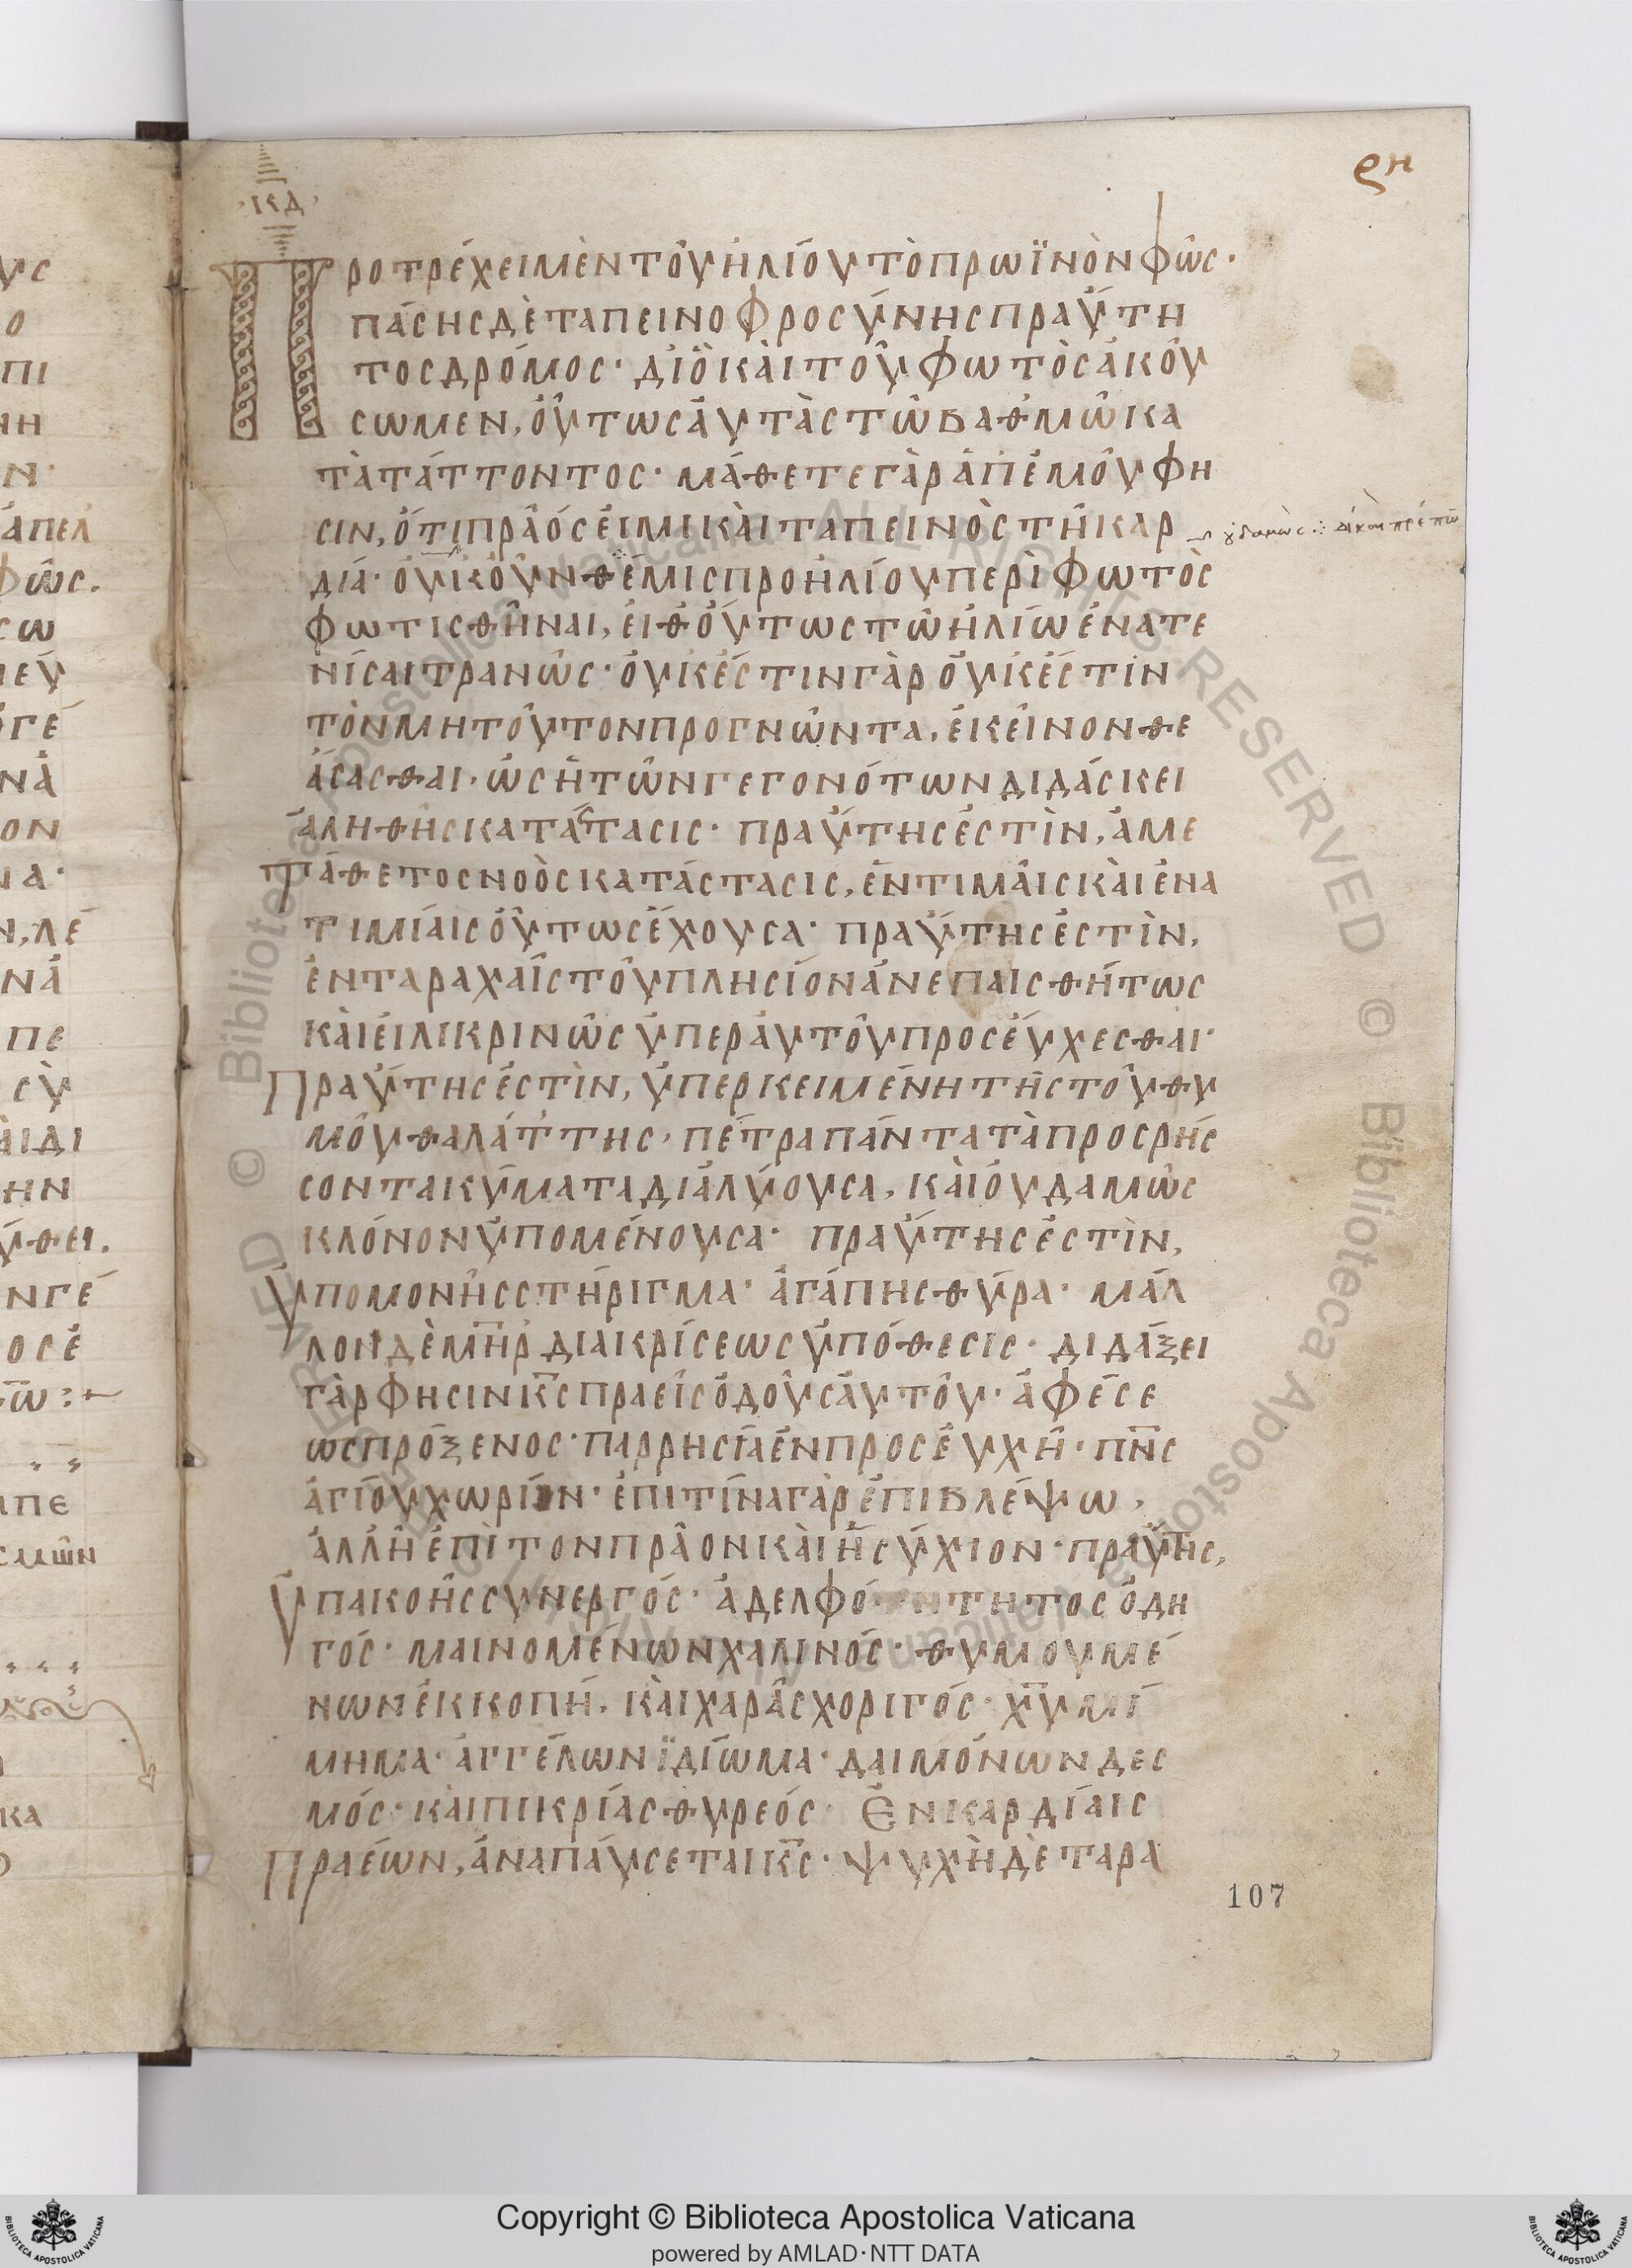 ϙη
·ΚΔ·
Προτρέχει μὲν τοῦ ἡλίου τὸ πρωϊνὸν φῶς·
πάσης δὲ ταπεινοφροσύνης πραΰτη
τος δρόμος· διὸ καὶ τοῦ φωτὸς ἀκού
σωμεν, οὕτως αὐτὰς τῶ βαθμῶ κα
τὰτάττοντος· μάθετε γὰρ ἀπ' ἐμοῦ φη
σιν, ὅτι πρᾶός εἰμι καὶ ταπεινὸς τῆ καρ
δία· οὐκοῦν θέμις προ ἡλίου περὶ φωτὸς
φωτισθῆναι, εἶθ οὕτως τῶ ἡλίω ἐνατε
νίσαι τρανῶς· οὐκ ἔστιν γὰρ οὐκ ἔστιν
τὸν μη τοῦτον προγνῶντα, ἐκεῖνον θε
άσασθαι, ὡς ἡ τῶν γεγονότων διδάσκει
ἀληθὴς κατάστασις· πραΰτης ἐστὶν, ἀμε
τάθετος νοὸς κατάστασις, ἐν τιμαῖς καὶ ἐν α
τιμίαις οὕτως ἔχουσα· πραΰτης ἐστὶν,
ἐν ταραχαῖς τοῦ πλησίον ἀνεπαισθήτως
καὶ εἰλικρινῶς ὑπερ αὐτοῦ προσεύχεσθαι·
Πραΰτης ἐστὶν, ὑπερκειμένη τῆς τοῦ θυ
μοῦ θαλάττης, πέτρα πάντα τὰ προσρήσ
σοντα κύματα διαλύουσα, καὶ οὐδαμῶς
κλόνον ὑπομένουσα· πραΰτης ἐστὶν,
Ὑπομονῆς στήριγμα· ἀγάπης θύρα· μάλ
λον δὲ μηρ διακρίσεως ὑπόθεσις· διδάξει
γὰρ φησιν κς πραεῖς ὁδοῦς αὐτοῦ· ἀφέσε
ως πρόξενος· παρρησία ἐν προσευχῆ· πνς
ἁγίου χωρίον· ἐπι τίνα γὰρ ἐπιβλέψω,
ἀλλ' ἢ ἐπὶ τον πρᾶον καὶ ἡσύχιον· πραΰτης,
Ὑπακοῆς συνεργός· ἀδελφότητος ὁδη
γός· μαινομένων χαλινός· θυμουμέ
νων ἐκκοπή, καὶ χαρᾶς χοριγός· χυ μί
μημα· ἀγγέλων ϊδίωμα· δαιμόνων δεσ
μός· καὶ πικρίας θυρεός· Ἐν καρδίαις
Πραέων, ἀναπαύσεται κς· ψυχὴ δὲ ταρα
107
Copyright © Biblioteca Apostolica Vaticana
powered by AMLAD·NTT DATA